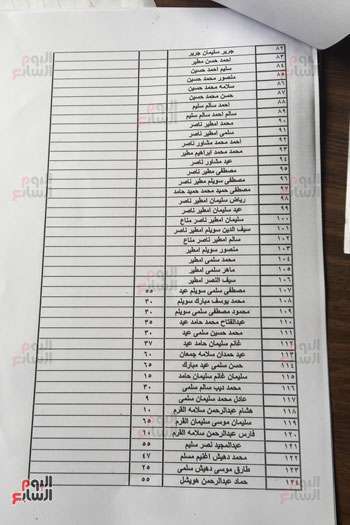 اليوم السابع
٨٢ جرير سليمان جرير
٨٣ احمد حسن مطير
٨٤ سليم احمد حسين
٨٥ منصور محمد حسين
٨٦ سلامه محمد حسين
٨٧ حسن محمد حسين
٨٨ احمد سالم سليم
٨٩ سالم احمد سالم سليم
٩٠ محمد امطير ناصر
٩١ سلمى امطير ناصر
٩٢ احمد محمد مشاور ناصر
٩٣ محمد محمد إبراهيم مطير
٩٤ عيد مشاور ناصر
٩٥ مصطفى مطير ناصر
٩٦ مصطفى سويلم مطير ناصر
٩٧ مصطفى حميد محمد حميد حامد
٩٨ رياض سليمان امطير ناصر
٩٩ عيد سليمان امطير ناصر
١٠٠ سليمان امطير ناصر مناع
١٠١ سيف الدين سويلم امطير ناصر
١٠٢ سالم امطير ناصر مناع
١٠٣ منصور سويلم امطير
١٠٤ محمد سلمى امطير
١٠٥ ماهر سلمى امطير
١٠٦ سيف النصر امطير
١٠٧ مصطفى سلمى سويلم عيد ٥٥
١٠٨ محمد يوسف مبارك سويلم ٣٠
١٠٩ محمود مصطفى سلمى سويلم ٣٠
١١٠ عبدالفتاح محمد حامد عيد ٣٥
١١١ محمد حسين سلمى عيد ٣٠
١١٢ غانم سليمان حامد عيد ٣٧
١١٣ عيد حمدان سلامه جمعان ٦٠
١١٤ حسن سلمى عيد مبارك ٦٥
١١٥ سليمان غانم سليمان حامد ١٥
١١٦ محمد ديب سالم سلمى ٣٠
١١٧ عادل محمد سليمان سلمى ٩
١١٨ هشام عبدالرحمن سلامه القرم ١٠
١١٩ سليمان موسى سليمان القرم ٦٥
١٢٠ فارس عبدالرحمن سلامه القرم ١٠
١٢١ عبدالمجيد نصر سليم ٥٥
١٢٢ محمد دهيش اغنيم مسلم ٤٧
١٢٣ طارق موسى دهيش سلمى ٢٥
١٢٤ حماد عبدالرحمن هويشل ٥٥